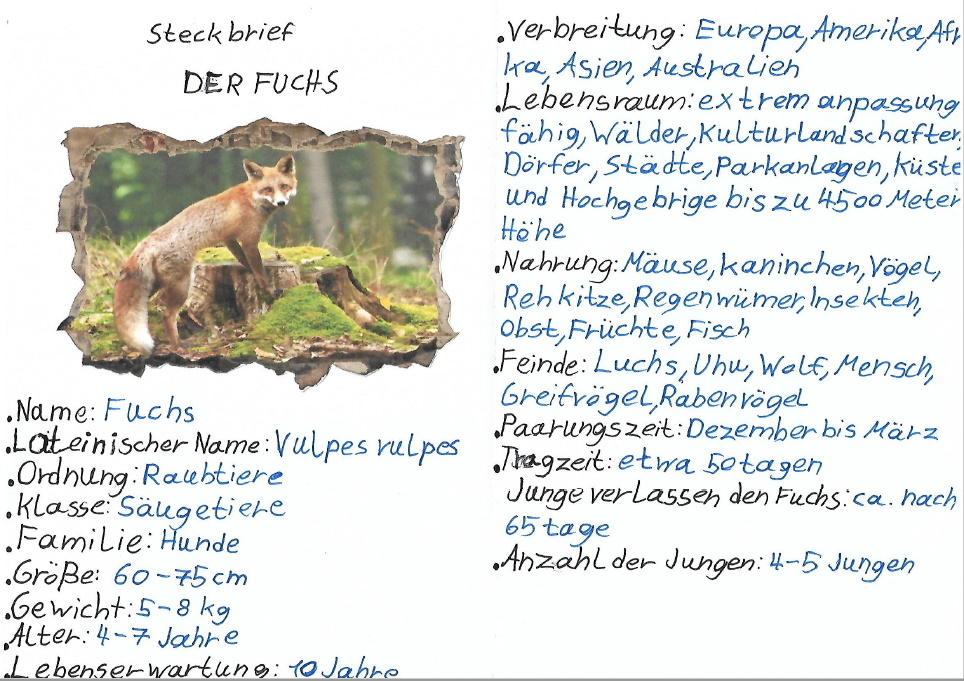 Steckbrief
DER FUCHS
.Name: Fuchs
.Lateinischer Name: Vulpes vulpes
.Ordnung: Raubtiere
.Klasse: Säugetiere
.Familie: Hunde
.Größe: 60-75cm
.Gewicht: 5-8 kg
.Alter: 4-7 Jahre
.Lebenserwartung: 10 Jahre
.Verbreitung: Europa, Amerika, Afri
ka, Asien, Australien
.Lebensraum: extrem anpassung
fähig, Wälder, Kulturlandschaften,
Dörfer, Städte, Parkanlagen, Küste
und Hochgebrige bis zu 4500 Meter
Höhe
.Nahrung: Mäuse, kaninchen, Vögel,
Rehkitze, Regenwümer, Insekten,
Obst, Früchte, Fisch
.Feinde: Luchs, Uhu, Wolf, Mensch,
Greifvögel, Rabenvögel
.Paarungszeit: Dezember bis März
.Tragzeit: etwa 50 tagen
Junge verlassen den Fuchs: ca. nach
65 tage
.Anzahl der Jungen: 4-5 Jungen